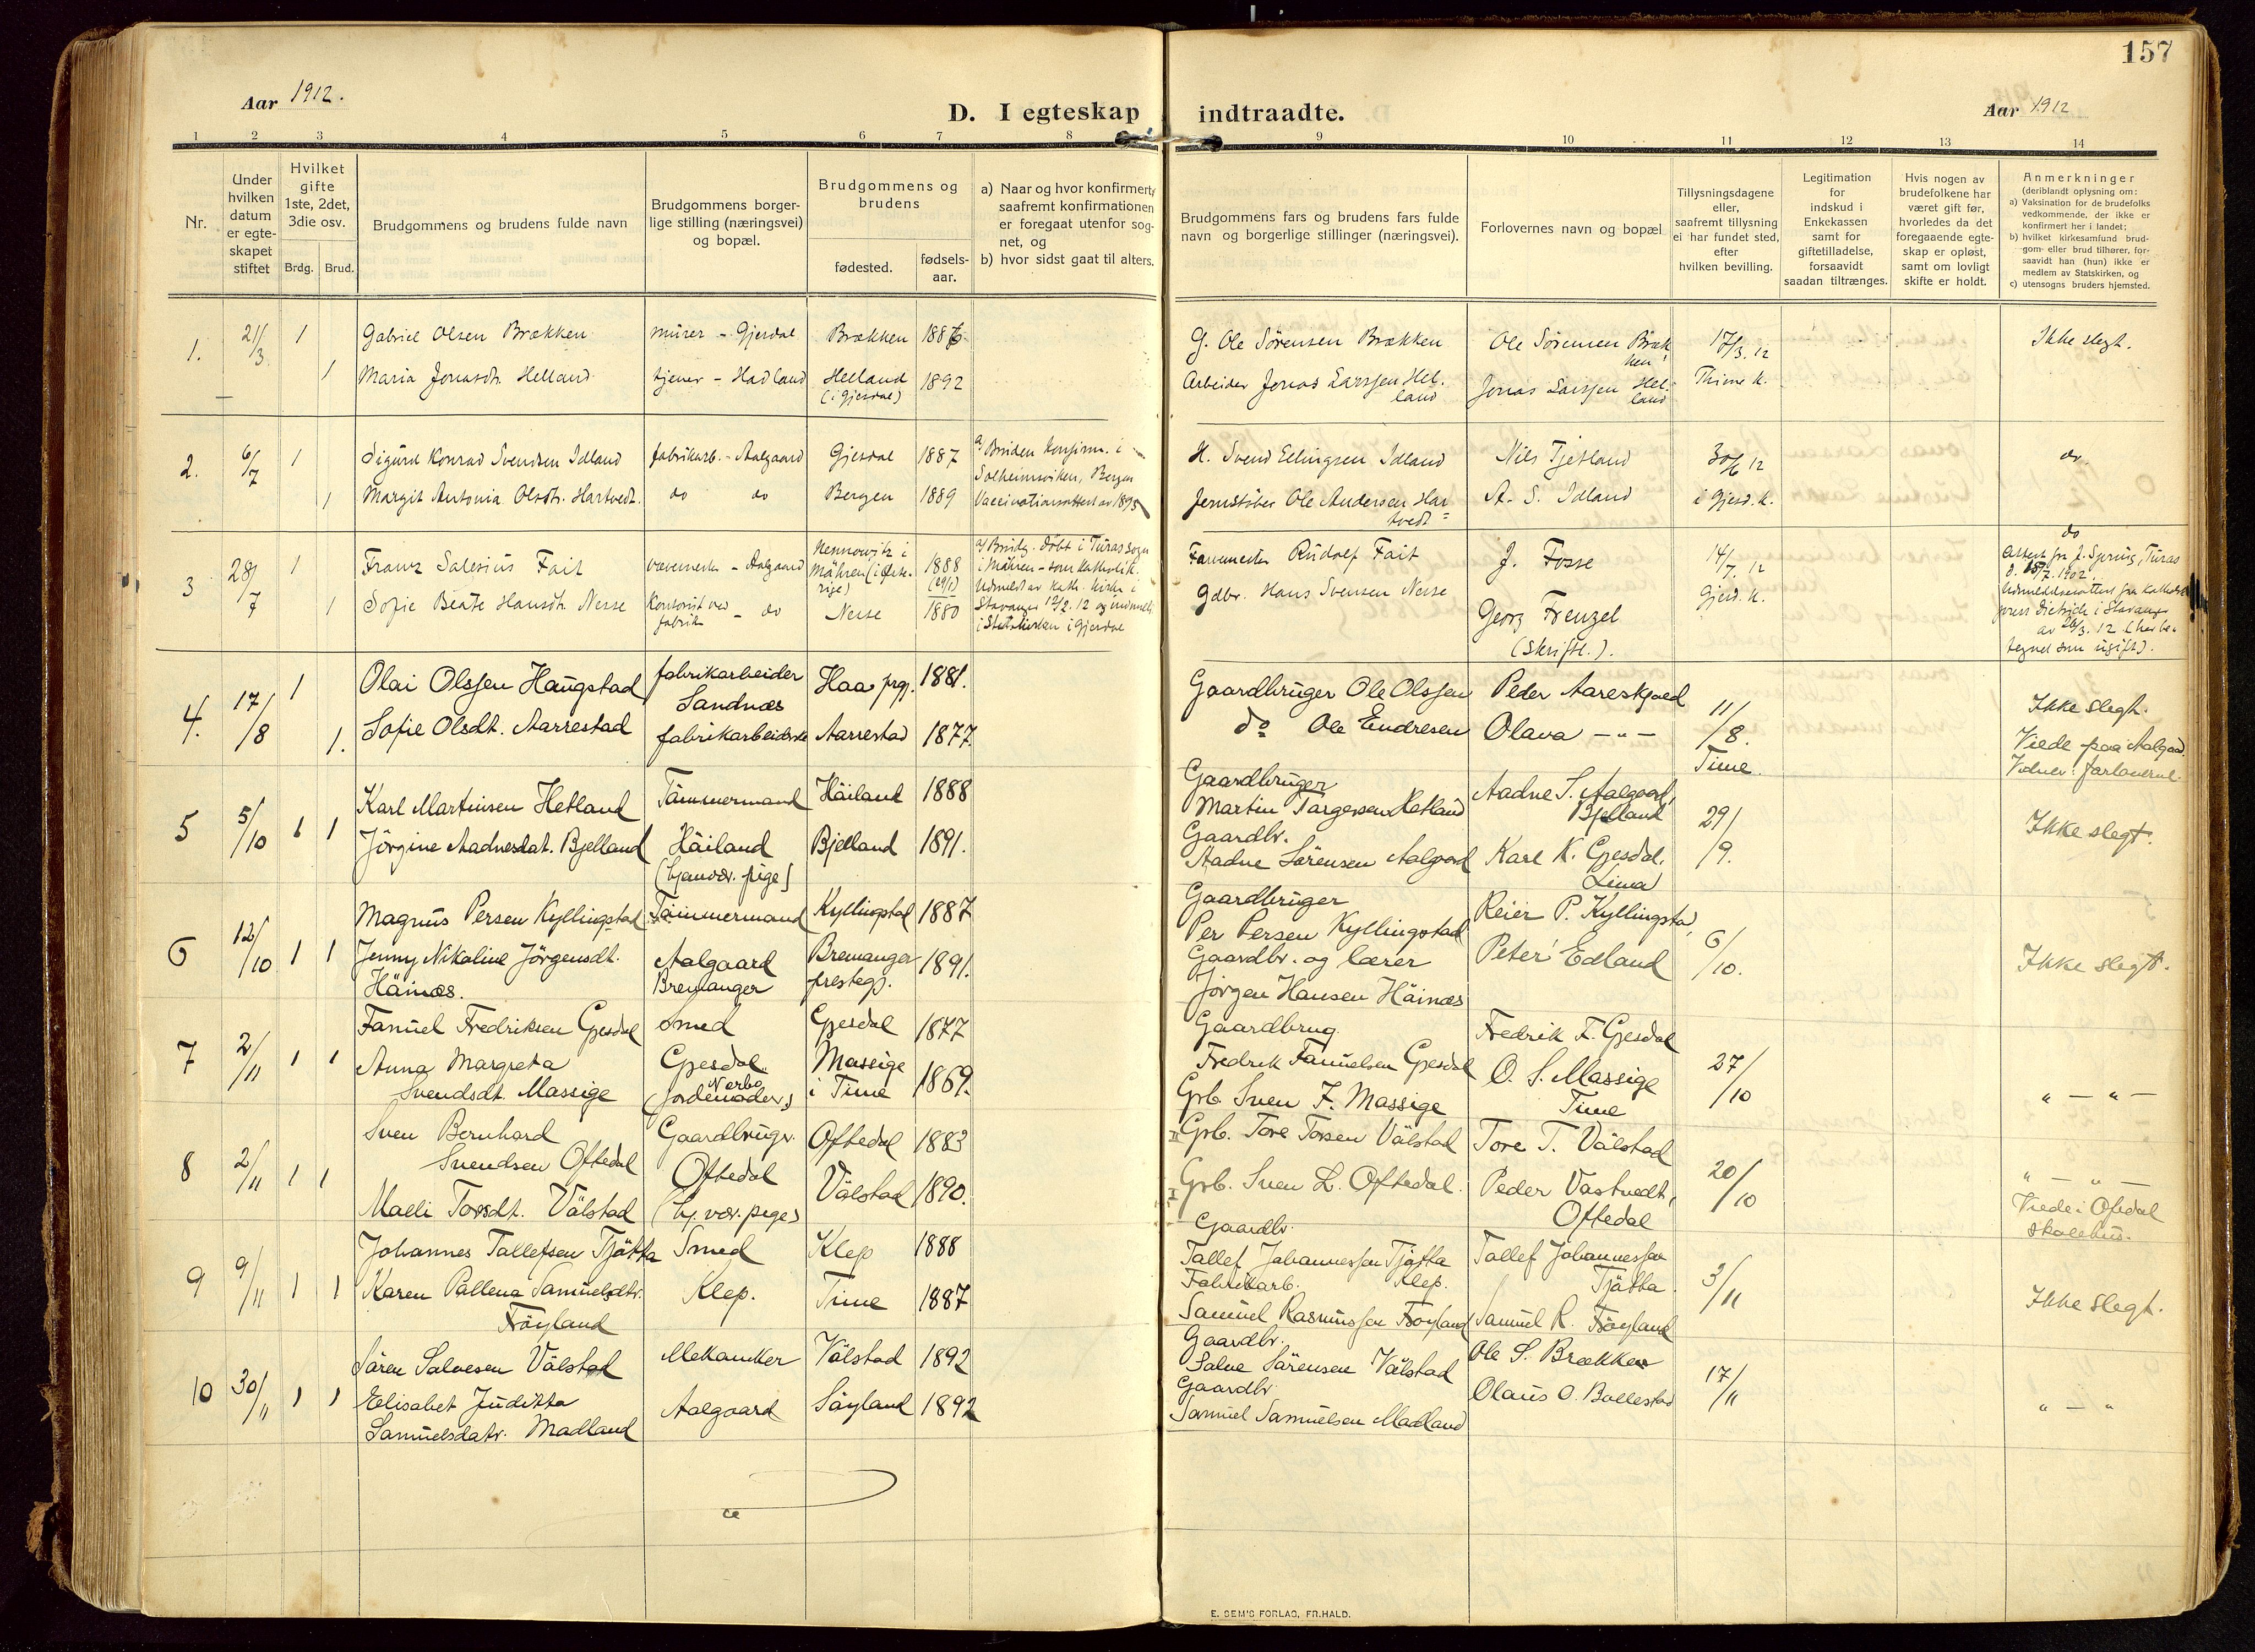 157
Aar 1912.
D. I egteskap indtraadte.
Aar 1912
1 2 3 4 5 6 7 8 9 10 11 12 13 14
Nr.
Under
hvilken
datum
er egte-
skapet
stiftet
Hvilket
gifte
1ste, 2det,
3die osv.
Brdg. Brud.
Brudgommens og brudens fulde navn
Brudgommens borger-
lige stilling (næringsvei)
og bopæl.
Brudgommens og
brudens
fødested.
fødsels-
aar.
a) Naar og hvor konfirmert,
saafremt konfirmationen
er foregaat utenfor sog-
net, og
b) hvor sidst gaat til alters.
Brudgommens fars og brudens fars fulde
navn og borgerlige stillinger (næringsvei).
Forlovernes navn og bopæl
Tillysningsdagene
eller,
saafremt tillysning
ei har fundet sted,
efter
hvilken bevilling.
Legitimation
for
indskud i
Enkekassen
samt for
giftetilladelse,
forsaavidt
saadan tiltrænges.
Hvis nogen av
brudefolkene har
været gift før,
hvorledes da det
foregaaende egte-
skap er opløst,
samt om lovligt
skifte er holdt.
Anmerkninger
(deriblandt oplysning om:
a) Vaksination for de brudefolks
vedkommende, der ikke er
konfirmert her i landet;
b) hvilket kirkesamfund brud-
gom- eller brud tilhører, for-
saavidt han (hun) ikke er
medlem av Statskirken, og
c) utensogns bruders hjemsted.
1. 21/3 1 Gabriel Olsen Brækken murer - Gjesdal Brækken 1886 G. Ole Sörensen Brækken Ole Sörensen Bræk
ken 17/3. 12 Ikke slegt.
1 Maria Jonasdt. Helland tjener - Hadland Helland 1892 Arbeider Jonas Larssen Hel- Jonas Larssen Hel- Thime k.
(i Gjesdal) land land
2. 6/7 1 Sigurd Konrad Svendsen Idland fabrikarb. - Aalgaard Gjesdal 1887 a/ Bruden konfirm. i H. Svend Ellingsen Idland Nils Tjetland 30/6 12 do.
Solheimsviken, Bergen
1 Margit Antonia Olsdt. Hartvedt. do do Bergen 1889 Vaccinationsattest av 1895 Jernstöber Ole Andersen Har A. S. Idland i Gjesd. k.
tvedt
3 28/7 1 Franz Salesius Fait vævemester - Aalgaard Nennowitz i 1888 a/ Brudg. döbt i Turas sogn Farvemester Rudolf Fait J. Fosse 14/7. 12 do
Mähren (i Öste- (29/1) i Mähren - som katholik.
rige) Udmeldt av kath. kirke i
1 Sofie Beate Hansdt. Nesse Kontorist ved - do Nesse 1880 Stavanger 12/2. 12 og indmeldt Gdbr. Hans Svensen Nesse Georg Frenzel Gjesd. k.
fabrik i Statskirken i Gjesdal (skriftl.).
Attest fra
Turas
7. 1902.
fra katholsk
prest Dietrich i Stavanger
av 26/3. 12 (her be-
tegnet som ugift).
4. 17/8 1 Olai Olssen Haugstad fabrikarbeider Haa prgj. 1881. Gaardbruger Ole Olssen Peder Aareskjold 11/8. Ikke slegt.
Sandnæs
1. Sofie Olsdt. Aarrestad fabrikarbeiderske Aarrestad 1877. do Ole Endresen Olava - " - Time. Viede paa Aalgaard
Vidner: forloverne
5 5/10 1 1 Karl Martinsen Hetland Tömmermand Häiland 1888 Gaardbruger Aadne S. Aalgaard, 29/9. Ikke slegt.
Martin Targersen Hetland Bjelland
Jörgine Aadnesdat. Bjelland Häiland Bjelland 1891. Gaardbr. Karl K. Gjesdal.
(hjemvær. pige) Aadne Sörensen Aalgaard Lima
6 12/10 1 1 Magnus Persen Kyllingstad Tömmermand Kyllingstad 1887 Gaardbruger Reier P. Kyllingstad, 6/10. Ikke slegt.
Per Persen Kyllingstad
Jenny Nikoline Jörgensdt. Aalgaard Bremanger 1891. Gaardbr. og lærer Peter Edland
Häinæs. Bremanger prestegj. Jörgen Hansen Häinæs
7 2/11 1 1 Fanuel Fredriksen Gjesdal Smed Gjesdal 1877 Gaardbrug. Fredrik F. Gjesdal 27/10 " - " -
Fredrik Fanuelsen Gjesdal
Anna Margreta Gjesdal. Massige 1869. O. S. Massige
Svendsdt. Massige Nærbø (Jordemoder) i Time Grb. Sven F. Massige Time
8 2/11 1 1 Sven Bernhard Gaardbruger. Oftedal 1883 II Grb. Tore Torsen Välstad Tore T. Välstad 20/10 " - " -
Svendsen Oftedal Oftedal Peder Vastvedt,
Maeli Torsdt. Välstad (hj. vær. pige) Välstad 1890. I Grb. Sven L. Oftedal. Oftedal Viede i Oftedal
skolehus.
9 9/11 1 1 Johannes Tallefsen Tjötta Smed Klep 1888 Gaardbr. Tallef Johannessen 3/11 Ikke slegt.
Tallef Johannessen Tjötta Klep. Tjötta
Karen Pallena Samuelsdtr. Klep. Time 1887 Fabrikarb.
Fröyland Samuel Rasmussen Fröyland Samuel R. Fröyland
10 30/11 1 1 Sören Salvesen Välstad Mekaniker Välstad 1892 Gaardbr. Ole S. Brækken 17/11 " - "
Salve Sörensen Välstad
Elisabet Juditta Aalgaard Söyland 1892 Gaardbr. Olaus O. Bollestad
Samuelsdatr. Madland Samuel Samuelsen Madland
E. SEM'S FORLAG, FR.HALD.